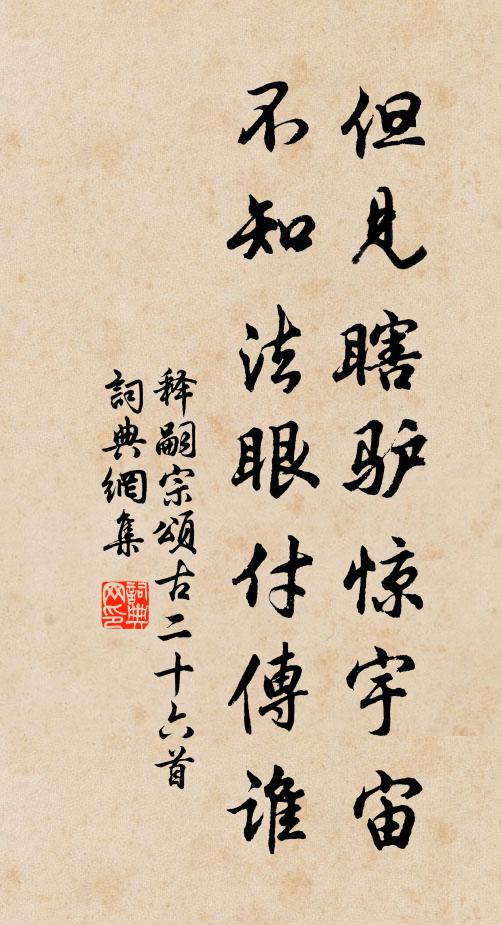 但见瞎驴惊宇宙
不知法眼付傳谁
释嗣宗頌古二十六首
詞典網集
詞典网印